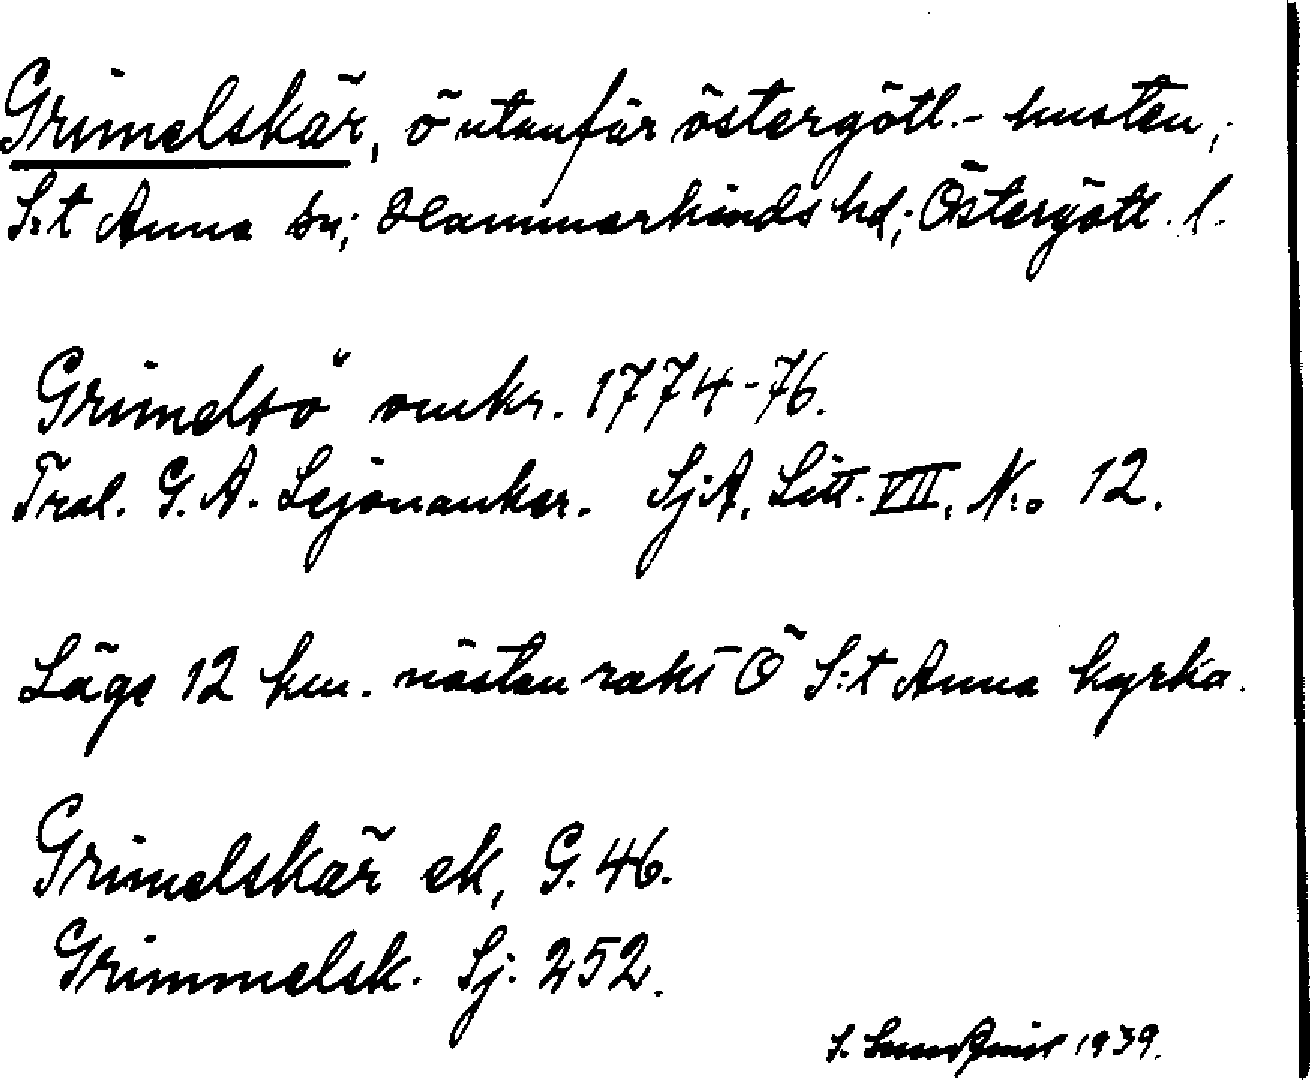 Grimelskär, ö utanför östergötl.- kusten,
S:t Anna sn; Hammarkinds hd; Östergötl. l.
Grimelsö omkr. 1774-76.
Trol. G. A. Lejonanker. SjA, Litt. VII, N:o 12.
Läge 12 km. nästan rakt Ö S:t Anna kyrka.
Grimelskär ek, G. 46.
Grimmelsk. Sj. 252.
S. 1939.